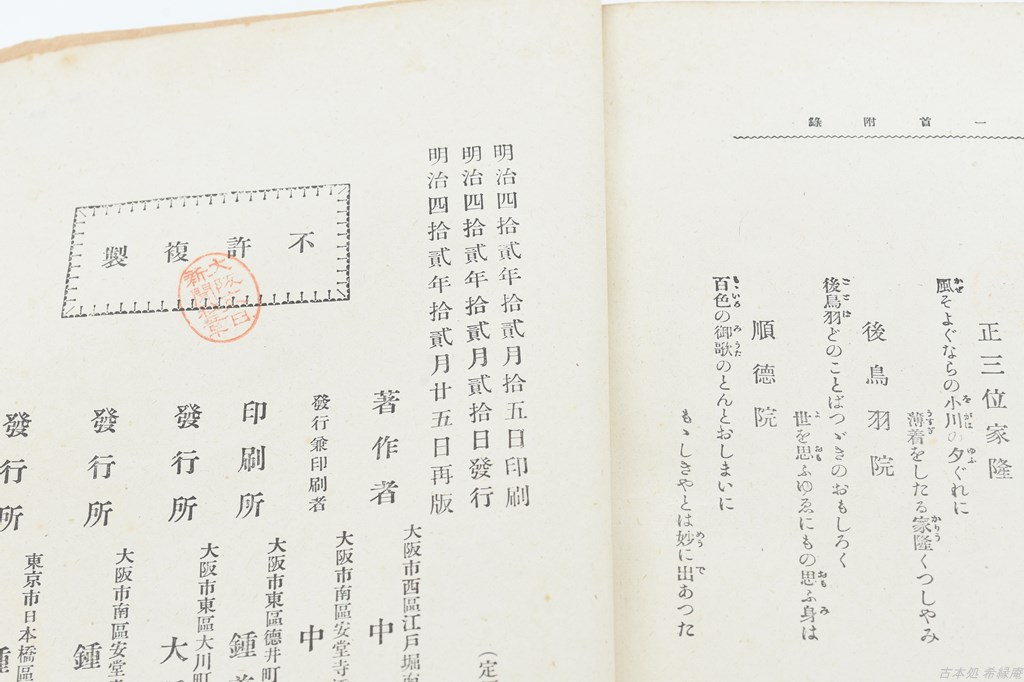 一首附錄
正三位家隆
風そよぐならの小川の夕ぐれに
薄着をしたる家隆くつしやみ
後鳥羽院
後鳥羽どのことばつゞきのおもしろく
世を思ふゆゑにもの思ふ身は
順德院
百色の御歌のとんとおしまいに
もゝしきやとは妙に出あつた
明治四拾貳年拾貳月拾五日印刷
明治四拾貳年拾貳月貳拾日發行
明治四拾貳年拾貳月廿五日再版
不許複製
著作者
大阪市西區江戸堀南
中
發行兼印刷者
大阪市南區安堂寺
中
印刷所
大阪市東區德井町
鍾
發行所
大阪市東區大川町
大
發行所
大阪市南區安堂
鍾
發行所
東京市日本橋區
鍾
古本処 希縁庵